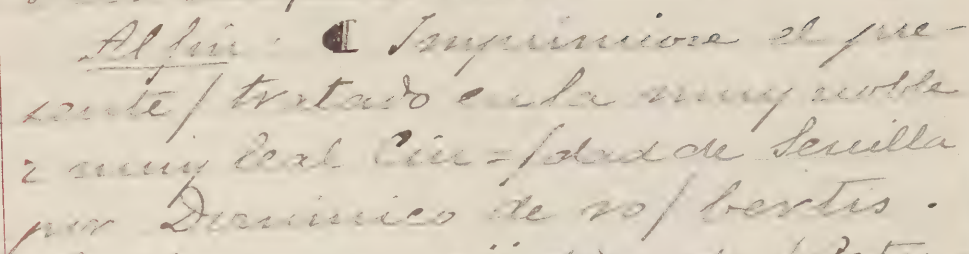 Al fin: ¶ Imprimiose el pre-
sente / tratado en la muy noble
z muy leal Ciu = / dad de Seuilla
por Dominico de ro / bertis.